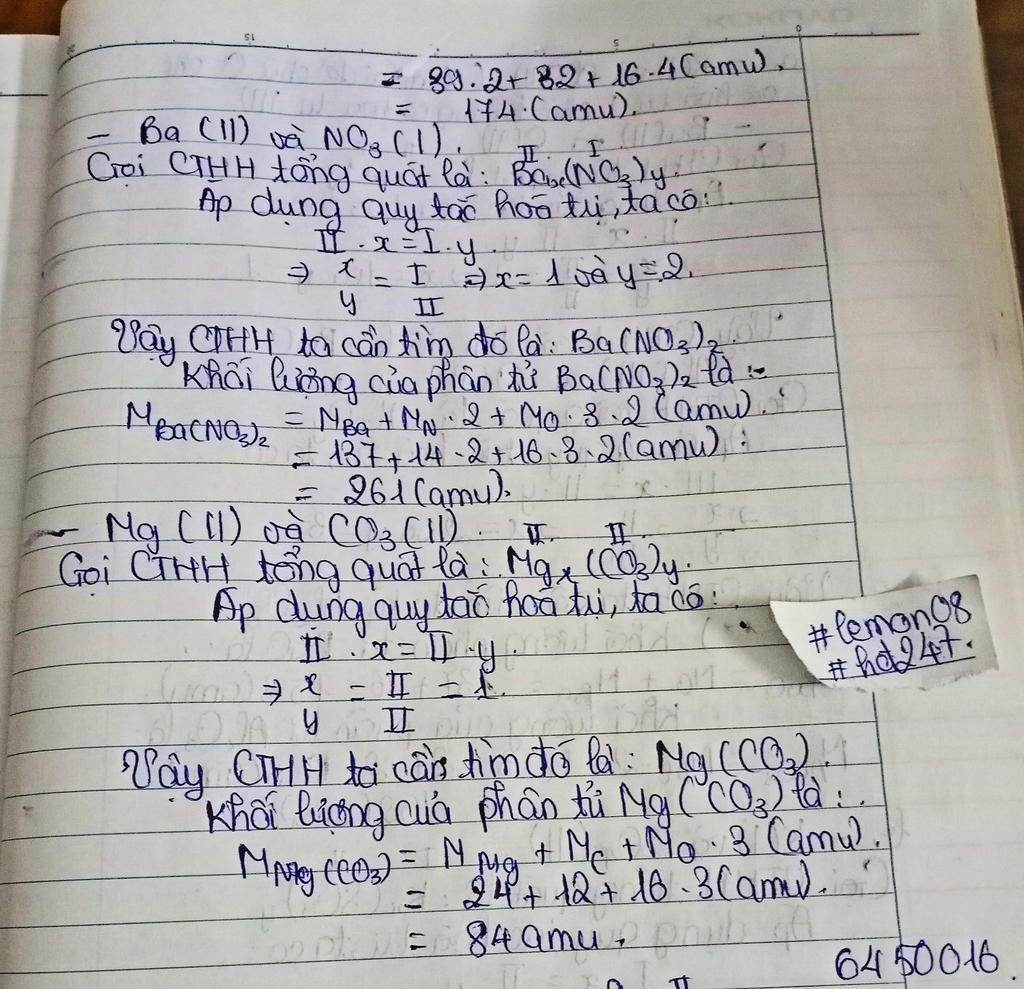 = 39.2+ 32 + 16.4 (amu).
= 174.(amu).
- Ba (II) và NO3 (I).
II I
Gọi CTHH tổng quát là: Bax(NO3)y.
Áp dụng quy tắc hoá trị, ta có:
II . x = I . y.
⇒ x = I ⇒ x = 1 và y = 2.
y II
Vậy CTHH ta cần tìm đó là: Ba(NO3)2.
Khối lượng của phân tử Ba(NO3)2 là:
MBa(NO3)2 = MBa + MN . 2 + MO . 3 . 2 (amu).
= 137 + 14 . 2 + 16 . 3 . 2 (amu).
= 261 (amu).
- Mg (II) và CO3 (II).
II II
Gọi CTHH tổng quát là: Mgx (CO3)y.
Áp dụng quy tắc hoá trị, ta có:
II . x = II . y.
⇒ x = II = 1.
y II
Vậy CTHH ta cần tìm đó là: Mg(CO3).
Khối lượng của phân tử Mg(CO3) là:
MMg(CO3) = MMg + MC + MO . 3 (amu).
= 24 + 12 + 16 . 3 (amu).
= 84 amu.
#lemon08
#hd247.
6450016